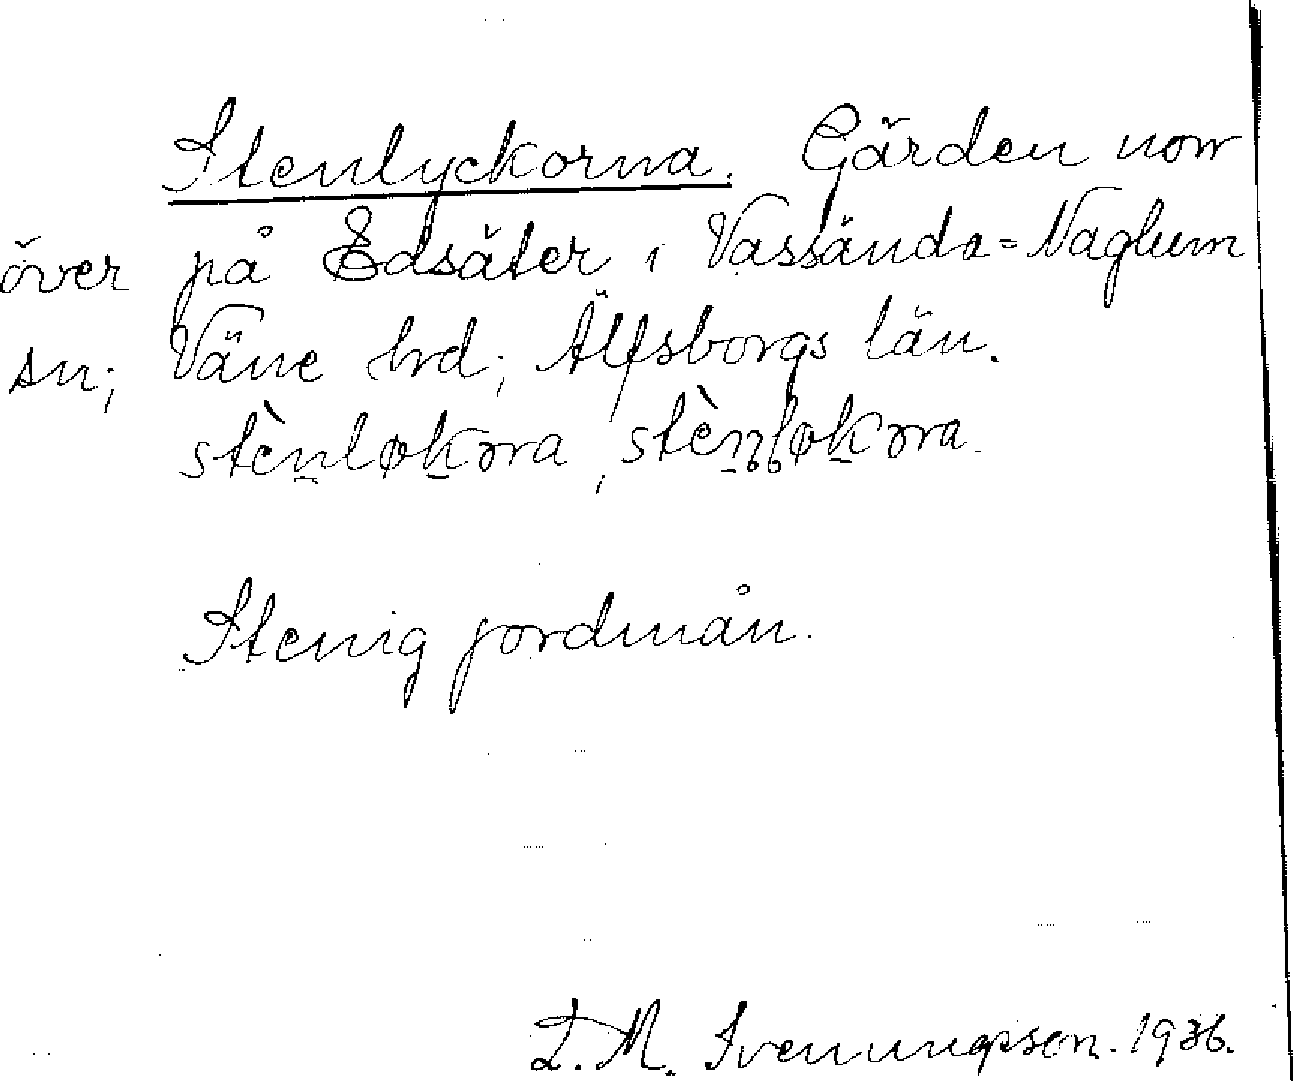 Stenlyckorna. Gärden norr
över på Edsäter i Vassända=Naglum
sn; Väne hrd; Älfsborgs län.
stènløkɷra, stèn̥l̥økɷra.
Stenig jordmån.
L. M. Svenungsson. 1936.